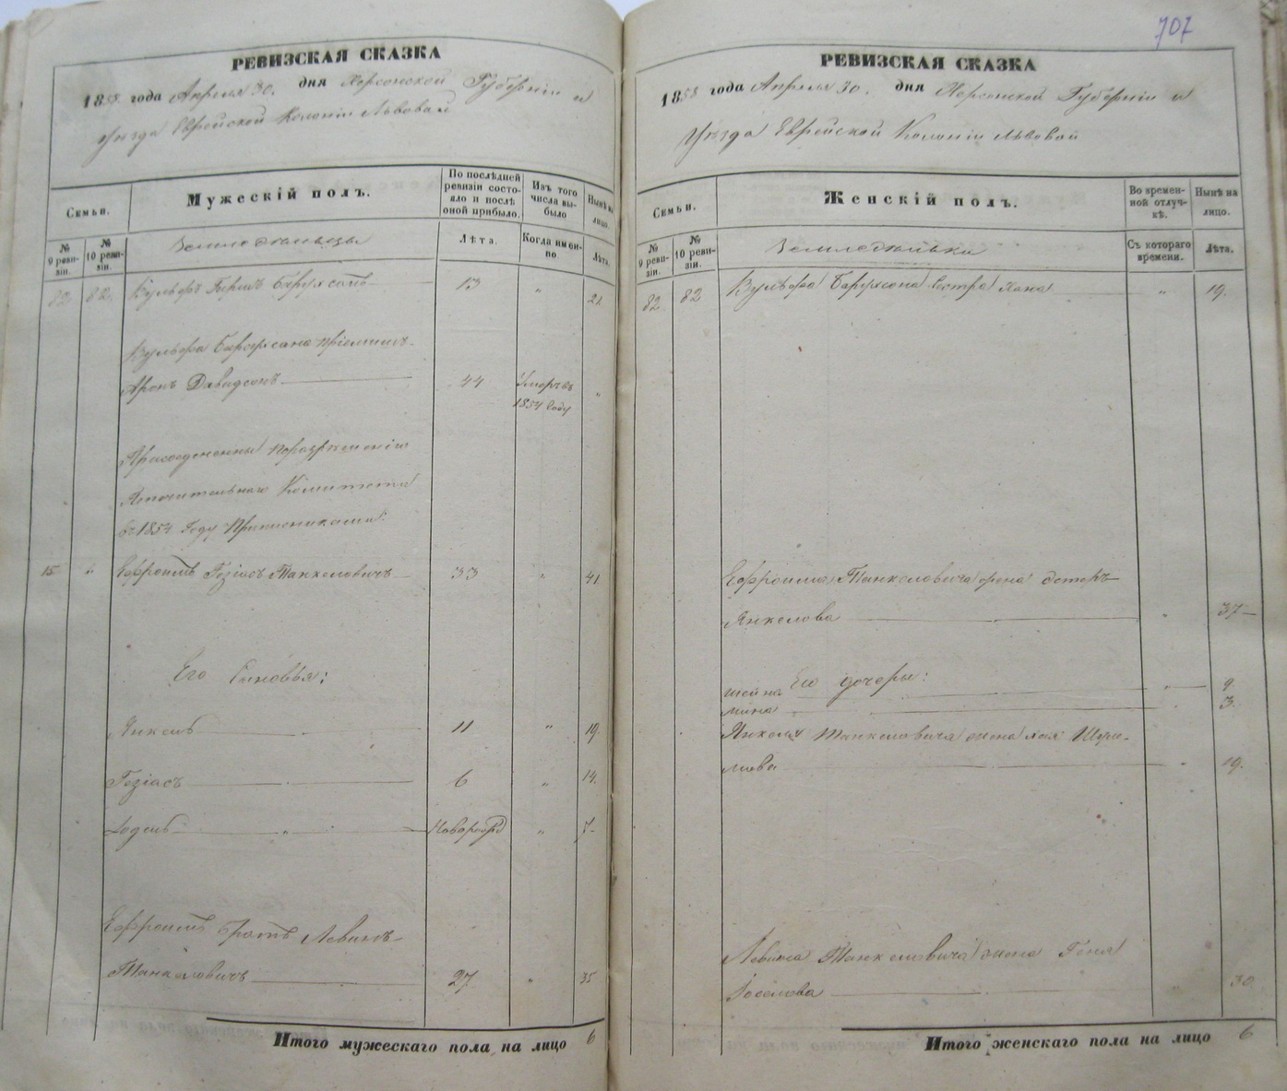 РЕВИЗСКАЯ СКАЗКА
1858 года Апреля 30. дня Херсонской Губерніи и
уѣзда Еврейской Колоніи Львовой
Семьи.
Мужескій полъ.
По послѣдней ревизіи состояло и послѣ оной прибыло.
Изъ того числа выбыло
Нынѣ на лицо.
№ 9 ревизіи.
№ 10 ревизіи.
Земледѣльцы
Лѣта.
Когда именно
Лѣта.
82 82 Вульфъ Гершъ Барухсонъ 13 " 21
Вульфа Барухсона
Аронъ Давидсонъ 44 Умеръ въ "
1854 году
Попечительнаго Комитета
въ 1854 Году
15 " Ефроимъ Гозіасъ Танхелевичъ 33 " 41
Его Сыновья:
Янкель 11 " 19
Гозіасъ 6 " 14.
" Новорожд " 7
Ефроимъ братъ Левинъ
27. " 35
Итого мужескаго пола на лицо 6
707
РЕВИЗСКАЯ СКАЗКА
1858 года Апреля 30. дня Херсонской Губерніи и
Уѣзда Еврейской Колоніи Львовой
Семьи.
Женскій полъ.
Во временной отлучкѣ.
Нынѣ на лицо.
№ 9 ревизіи.
№ 10 ревизіи.
Земледѣлки
Съ котораго времени.
Лѣта.
82 82 Вульфа Барухсона сестра Хана " 19.
Ефроима Танхелевича жена Эстеръ
Янкелова " 37
Его дочери:
Шейна " 9
Мина " 3.
Янкеля Танхелевича жена Хая
" 19.
Левина Танхелевича жена Геня
Іоселова " 30
Итого женскаго пола на лицо 6